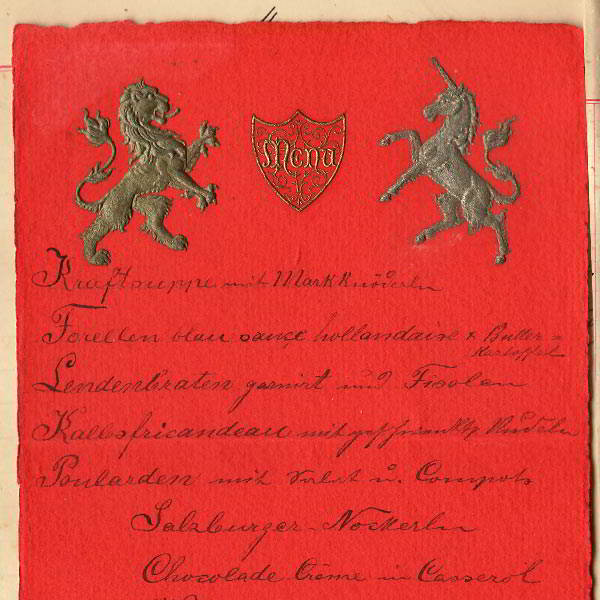 Menu
Kraftsuppe mit Markknöderln
Forellen blau sauce hollandaise & Butter=
Kartoffel
Lendenbraten garnirt und Fisolen
Kalbsfricandeau mit Nudeln
Poularden mit Salat u. Compots
Salzburger-Nockerln
Chocolade Crème in Casserol